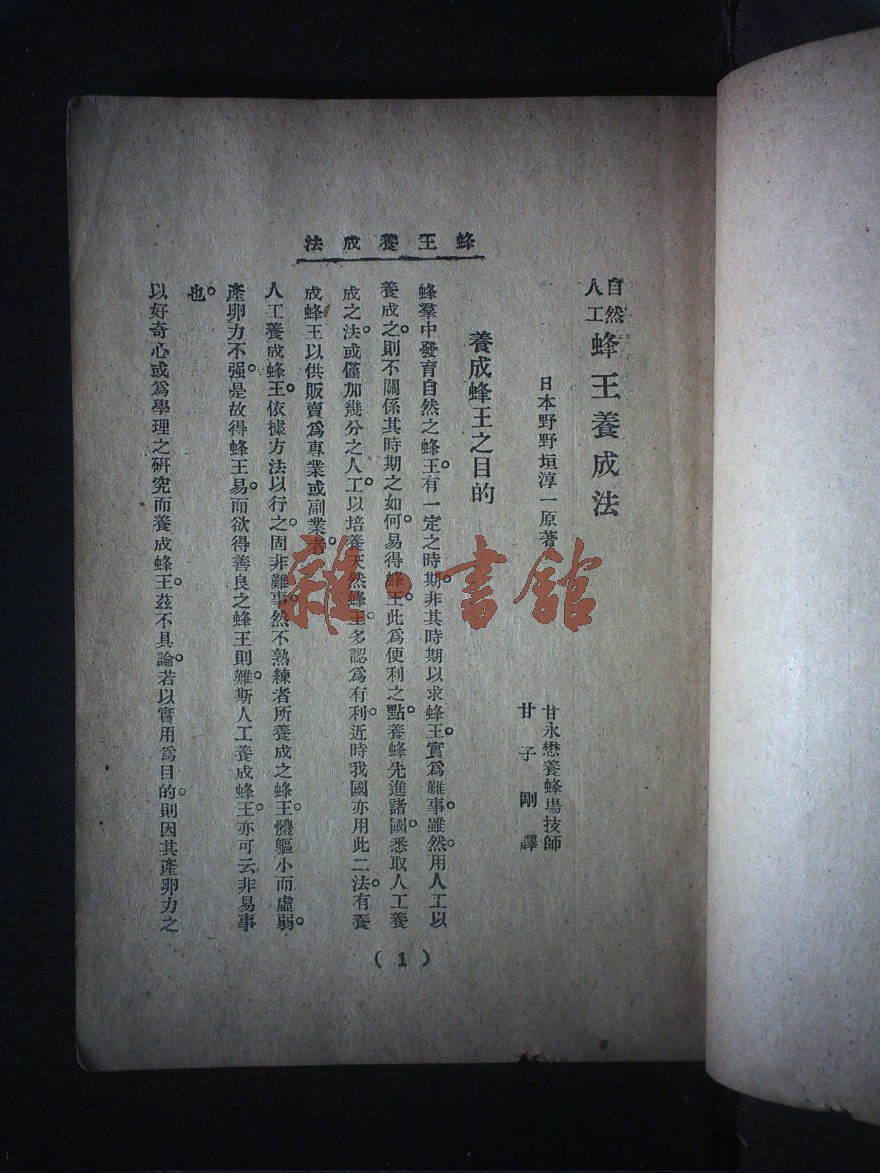 蜂王養成法
自然人工 蜂王養成法
日本野野垣淳一原著
甘永懋養蜂場技師
甘子剛譯
養成蜂王之目的
蜂羣中發育自然之蜂王。有一定之時期。非其時期以求蜂王。實爲難事。雖然。用人工以
養成之。則不關係其時期之如何。易得蜂王。此爲便利之點。養蜂先進諸國。悉取人工養
成之法。或僅加幾分之人工。以培養天然蜂王。多認爲有利。近時我國亦用此二法。有養
成蜂王以供販賣爲專業或副業者。
人工養成蜂王。依據方法以行之。固非難事。然不熟練者所養成之蜂王。體軀小而虛弱。
產卵力不强。是故得蜂王易。而欲得善良之蜂王則難。斯人工養成蜂王。亦可云非易事
也。
以好奇心或爲學理之研究而養成蜂王。茲不具論。若以實用爲目的。則因其產卵力之
(1)
雜·書館